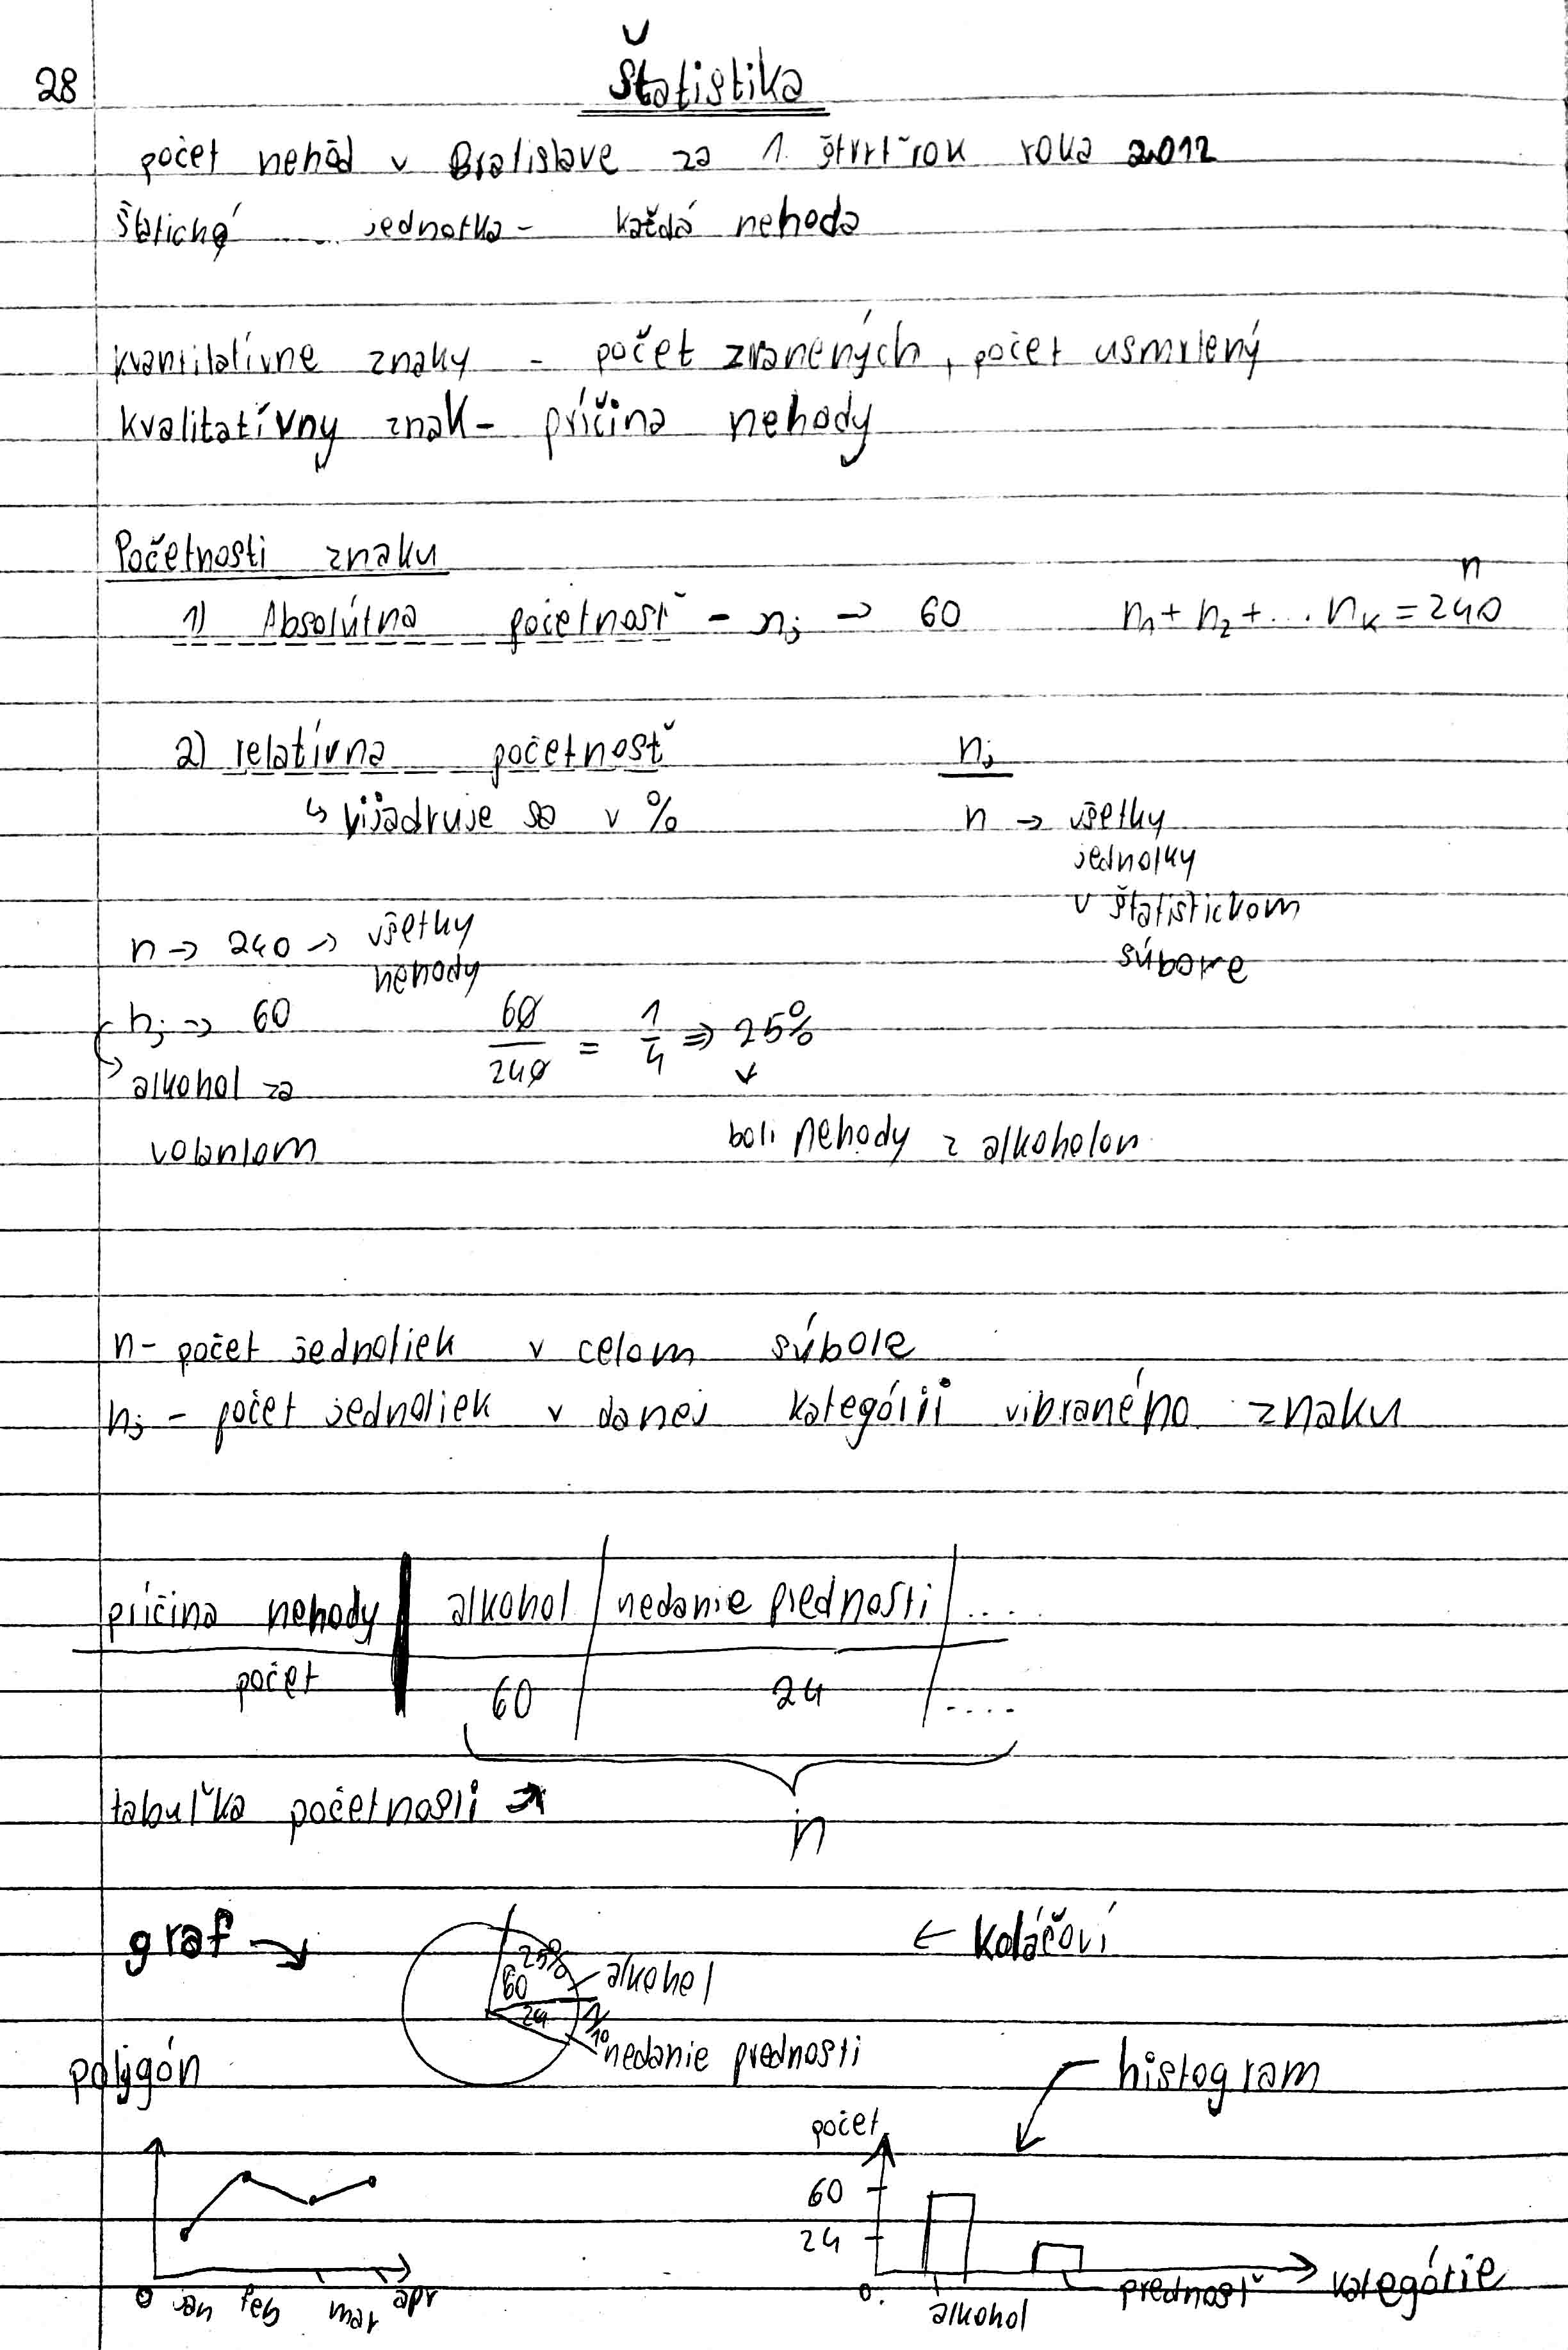 28
Štatistika
počet nehôd v Bratislave za 1. štvrťrok roka 2012
jednotka - každá nehoda
kvantitatívne znaky - počet zranených, počet usmrtený
kvalitatívny znak - príčina nehody
Početnosti znaku
1) Absolútna početnosť - nj → 60 n1 + n2 + ... nk = 240
n
2) relatívna početnosť nj
↳ vijadruje sa v % n → všetky
jednotky
v štatistickom
súbore
n → 240 → všetky
nehody
nj → 60 60/240 = 1/4 ⇒ 25%
alkohol za
volantom
boli nehody z alkoholom
n - počet jednotiek v celom súbore
nj - počet jednotiek v danej kategórii vibraného znaku
príčina nehody alkohol nedanie prednosti ....
počet 60 24 ....
tabuľka početnosti →
n
graf → ← koláčoví
25%
60 alkohol
24 1/10
nedanie prednosti
polygón histogram
počet
60
24
0 jan feb mar apr
0 alkohol prednosť kategórie